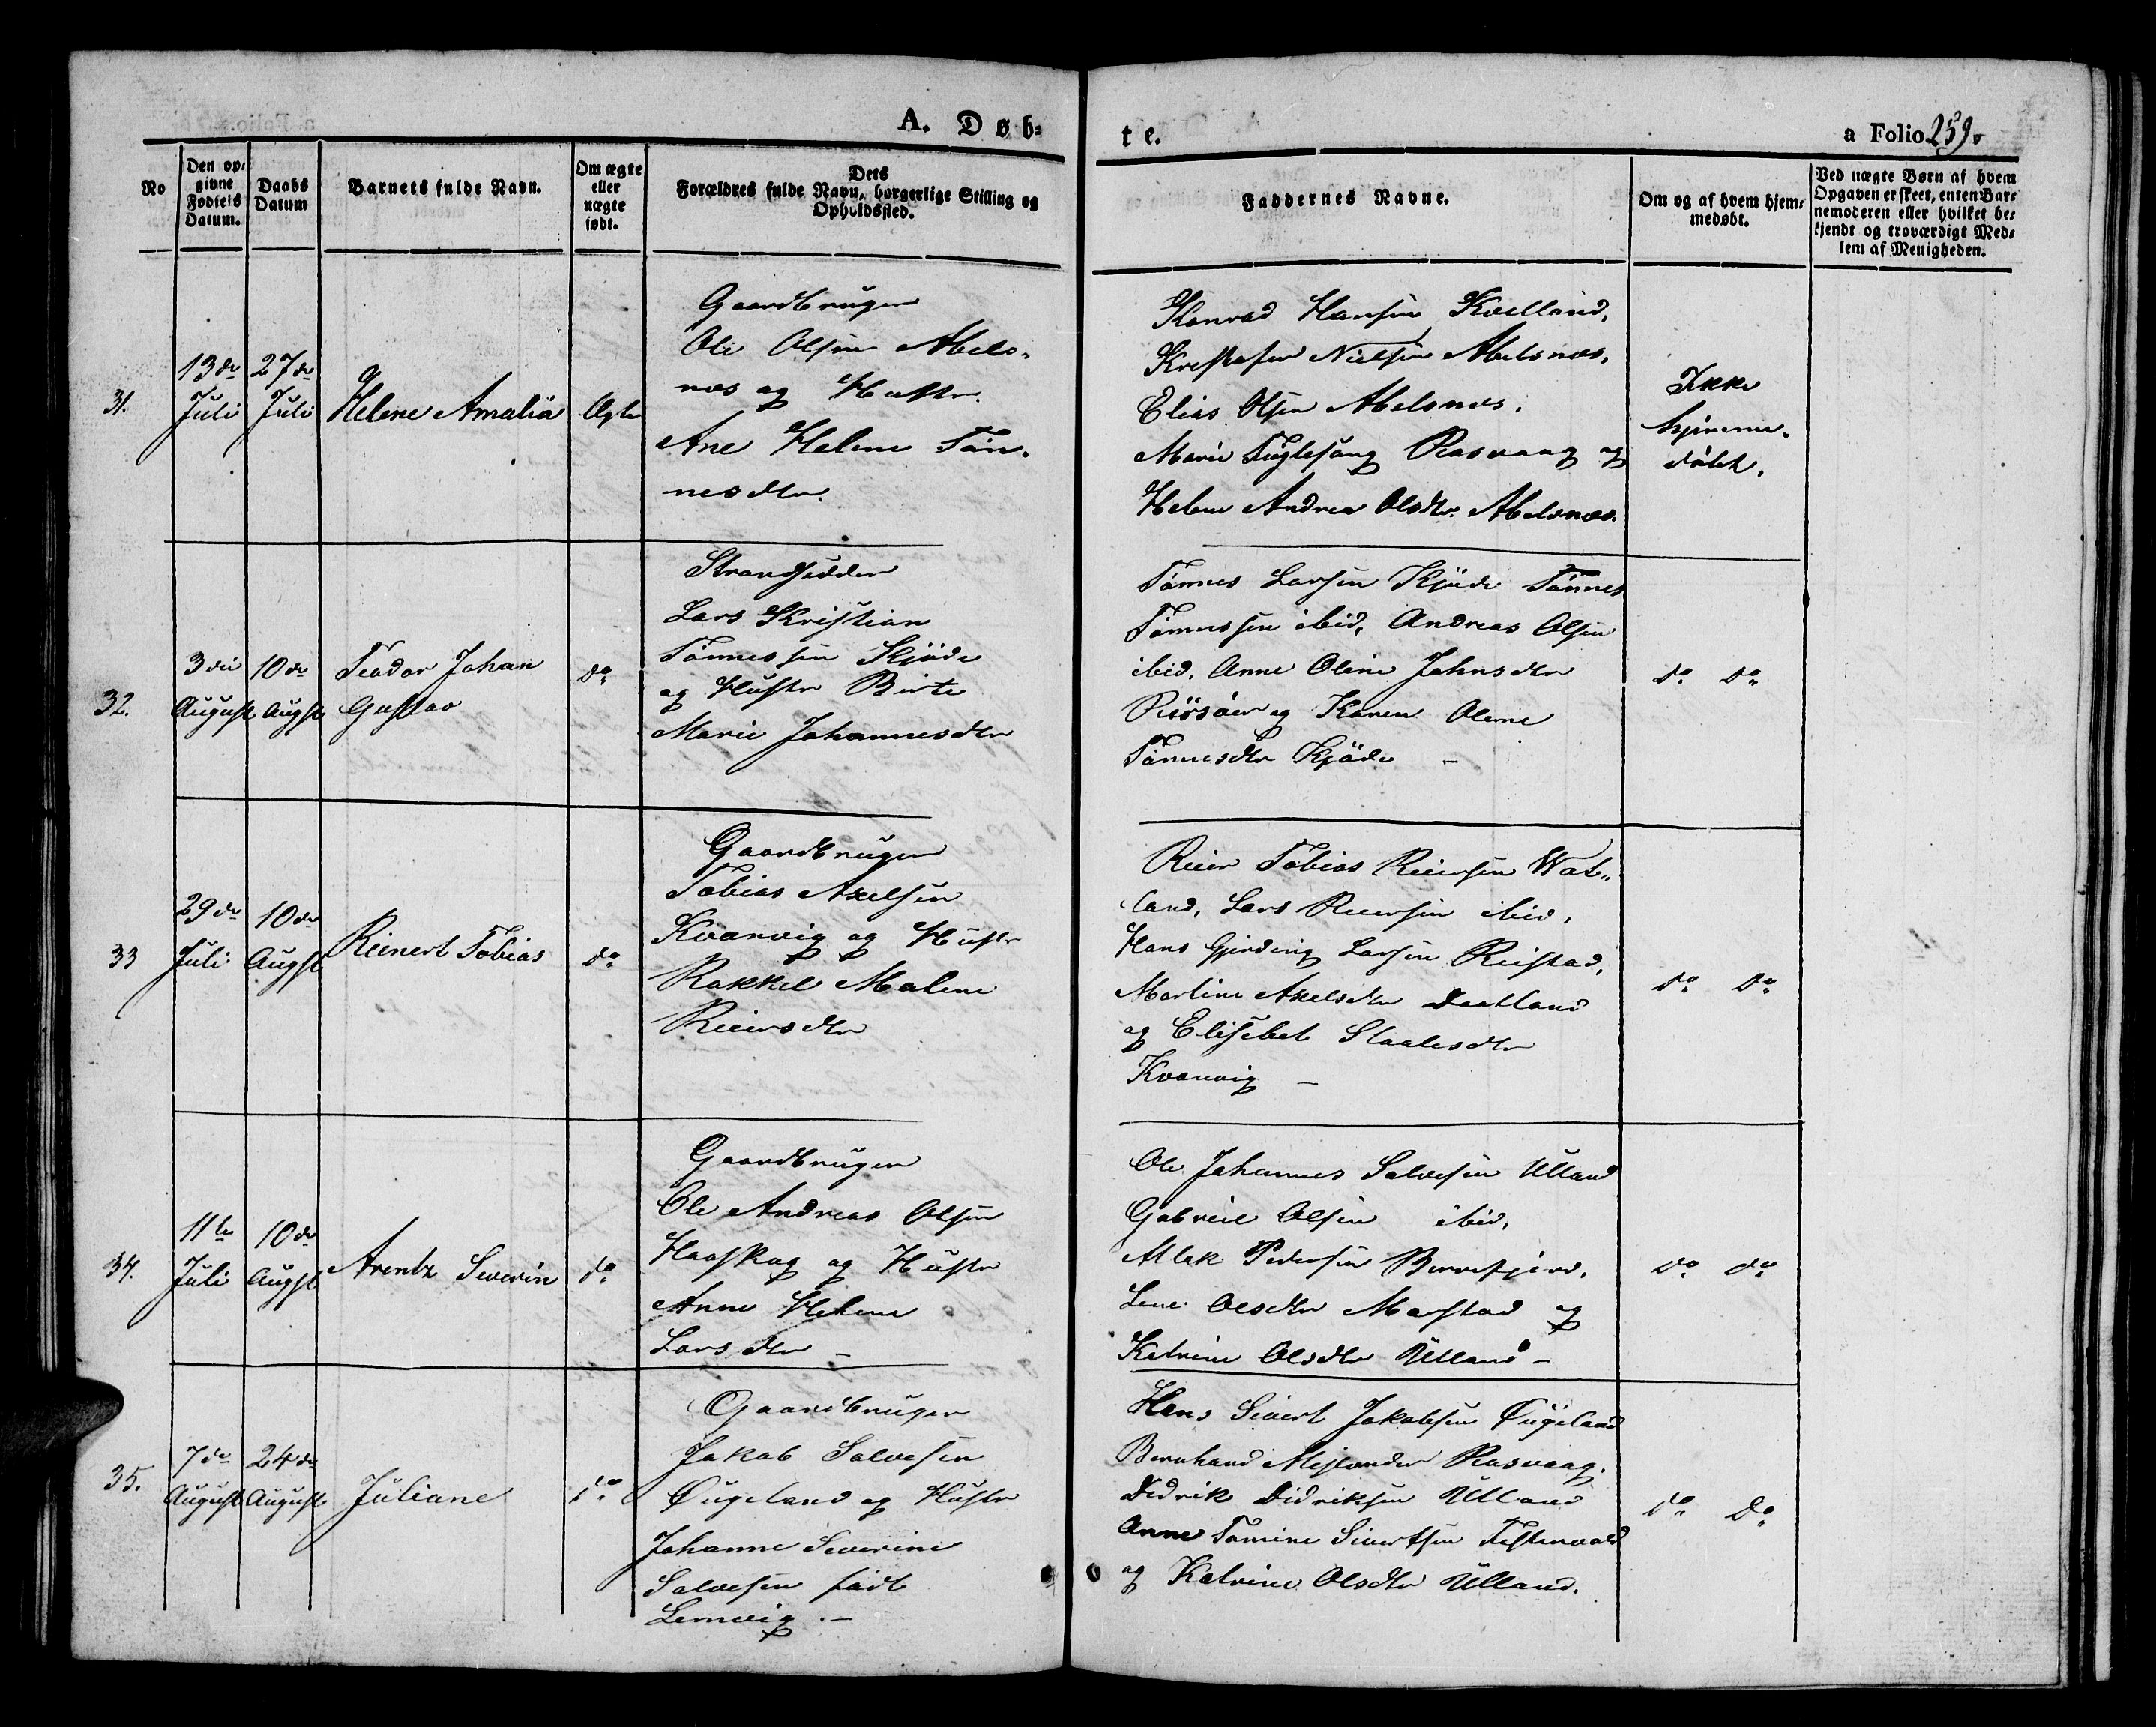 A. Døb-
te.
a Folio 259.
No
Den op-
givne
Fødsels
Datum.
Daabs
Datum
Barnets fulde Navn.
Om ægte
eller
uægte
født.
Dets
Forældres fulde Navn, borgerlige Stilling og
Opholdssted.
Faddernes Navne.
Om og af hvem hjem-
medøbt.
Ved uægte Børn af hvem
Opgaven er skeet, enten Bar-
nemoderen eller hvilket be-
kjendt og troværdigt Med-
lem af Menigheden.
31.
13de
Juli
27de
Juli
Helene Amalia
Ægte
Gaardbruger
Ole Olsen Abels-
næs og Hustr.
Ane Helene Tön-
nesdtr.
Konrad Hansen Kvelland,
Kristofer Nielsen Abelsnæs,
Elias Olsen Abelsnæs,
Marie Fuglesang Rasvaag og
Helene Andrea Olsdtr. Abelsnæs.
Ikke
hjemme-
döbt.
32.
3die
August
10de
Augst
Teodor Johan
Gustav
do
Strandsidder
Lars Kristian
Tönnessen Kjöde
og Hustr Birte
Marie Johannesdtr
Tönnes Larsen Kjöde Tönnes
Tönnessen ibid, Andreas Olsen
ibid, Anne Oline Johnsdtr
og Karen Olene
Tönnesdtr Kjöde –
do do
33
29de
Juli
10de
Augst
Reinert Tobias
do
Gaardbruger
Tobias Axelsen
Kvanvig og Hustr
Rakkel Malene
Reiersdtr
Reier Tobias Reiersen Wat-
land, Lars Reiersen ibid,
Hans Gjerding Larsen Reistad,
Martine Axelsdtr Daatland
og Elisebet Staalesdtr
Kvanvig –
do do
34.
11te
Juli
10de
Augst
Arentz Severin
do
Gaardbruger
Ole Andreas Olsen
Haaskag og Hustr
Anne Helene
Larsdtr –
Ole Johannes Salvesen Ulland
Gabriel Olsen ibid,
Atlak Pedersen Berrefjord,
Lene Olsdtr Marstad og
Katrine Olsdtr Ulland –
do do
35.
7de
August
24de
August
Juliane
do
Gaardbruger
Jakob Salvesen
Øugeland og Hustr
Johanne Severine
Salvesen födt
Lemvig. –
Hans Sivert Jakobsen Øugeland
Bernhard Mejlænder Rasvaag.
Didrik Didriksen Ulland
Anne Tomine Sivertsen Festervold
og Katrine Olsdtr Ulland.
do do